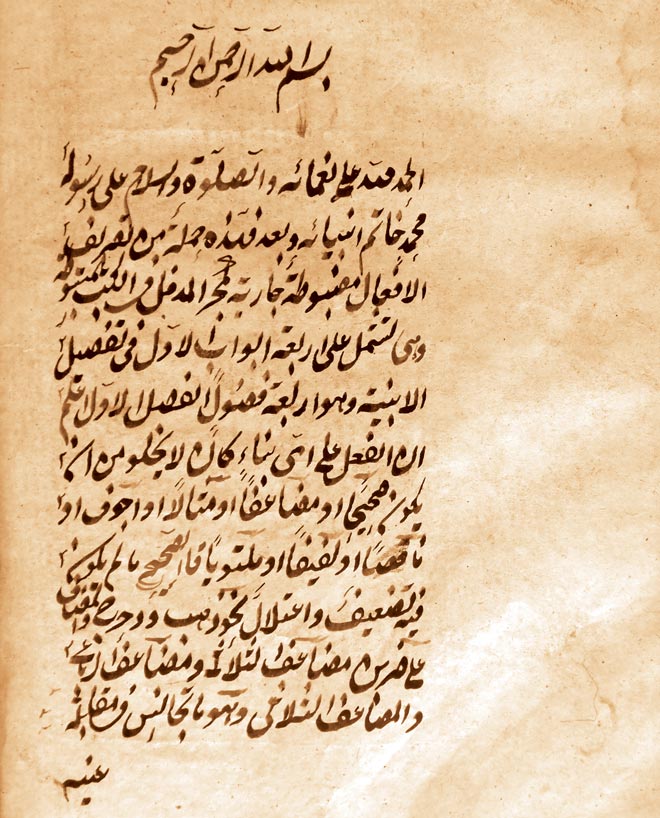 بسم الله الرحمن الرحيم
الحمد لله على نعمائه والصلوة والسلام على رسوله
محمد خاتم انبيائه وبعد فهذه جملة من تصريف
الافعال مضبوطة جارية مجرى المدخل فى الكتب المبسوطة
وهى تشتمل على اربعة ابواب الاول فى تفصيل
الابنية وهو اربعة فصول الفصل الاول اعلم
ان الفعل على اى بناء كان لا يخلو من ان
يكون صحيحا او مضاعفا او مثالا او اجوف او
ناقصا او لفيفا او ملتويا فالصحيح ما لم يكن
فيه تضعيف واعتلال نحو ذهب ودحرج والمضاعف
على ضربين مضاعف الثلاثى ومضاعف الرباعى
والمضاعف الثلاثى وهو ما تجانس فى مقابلة
عينه